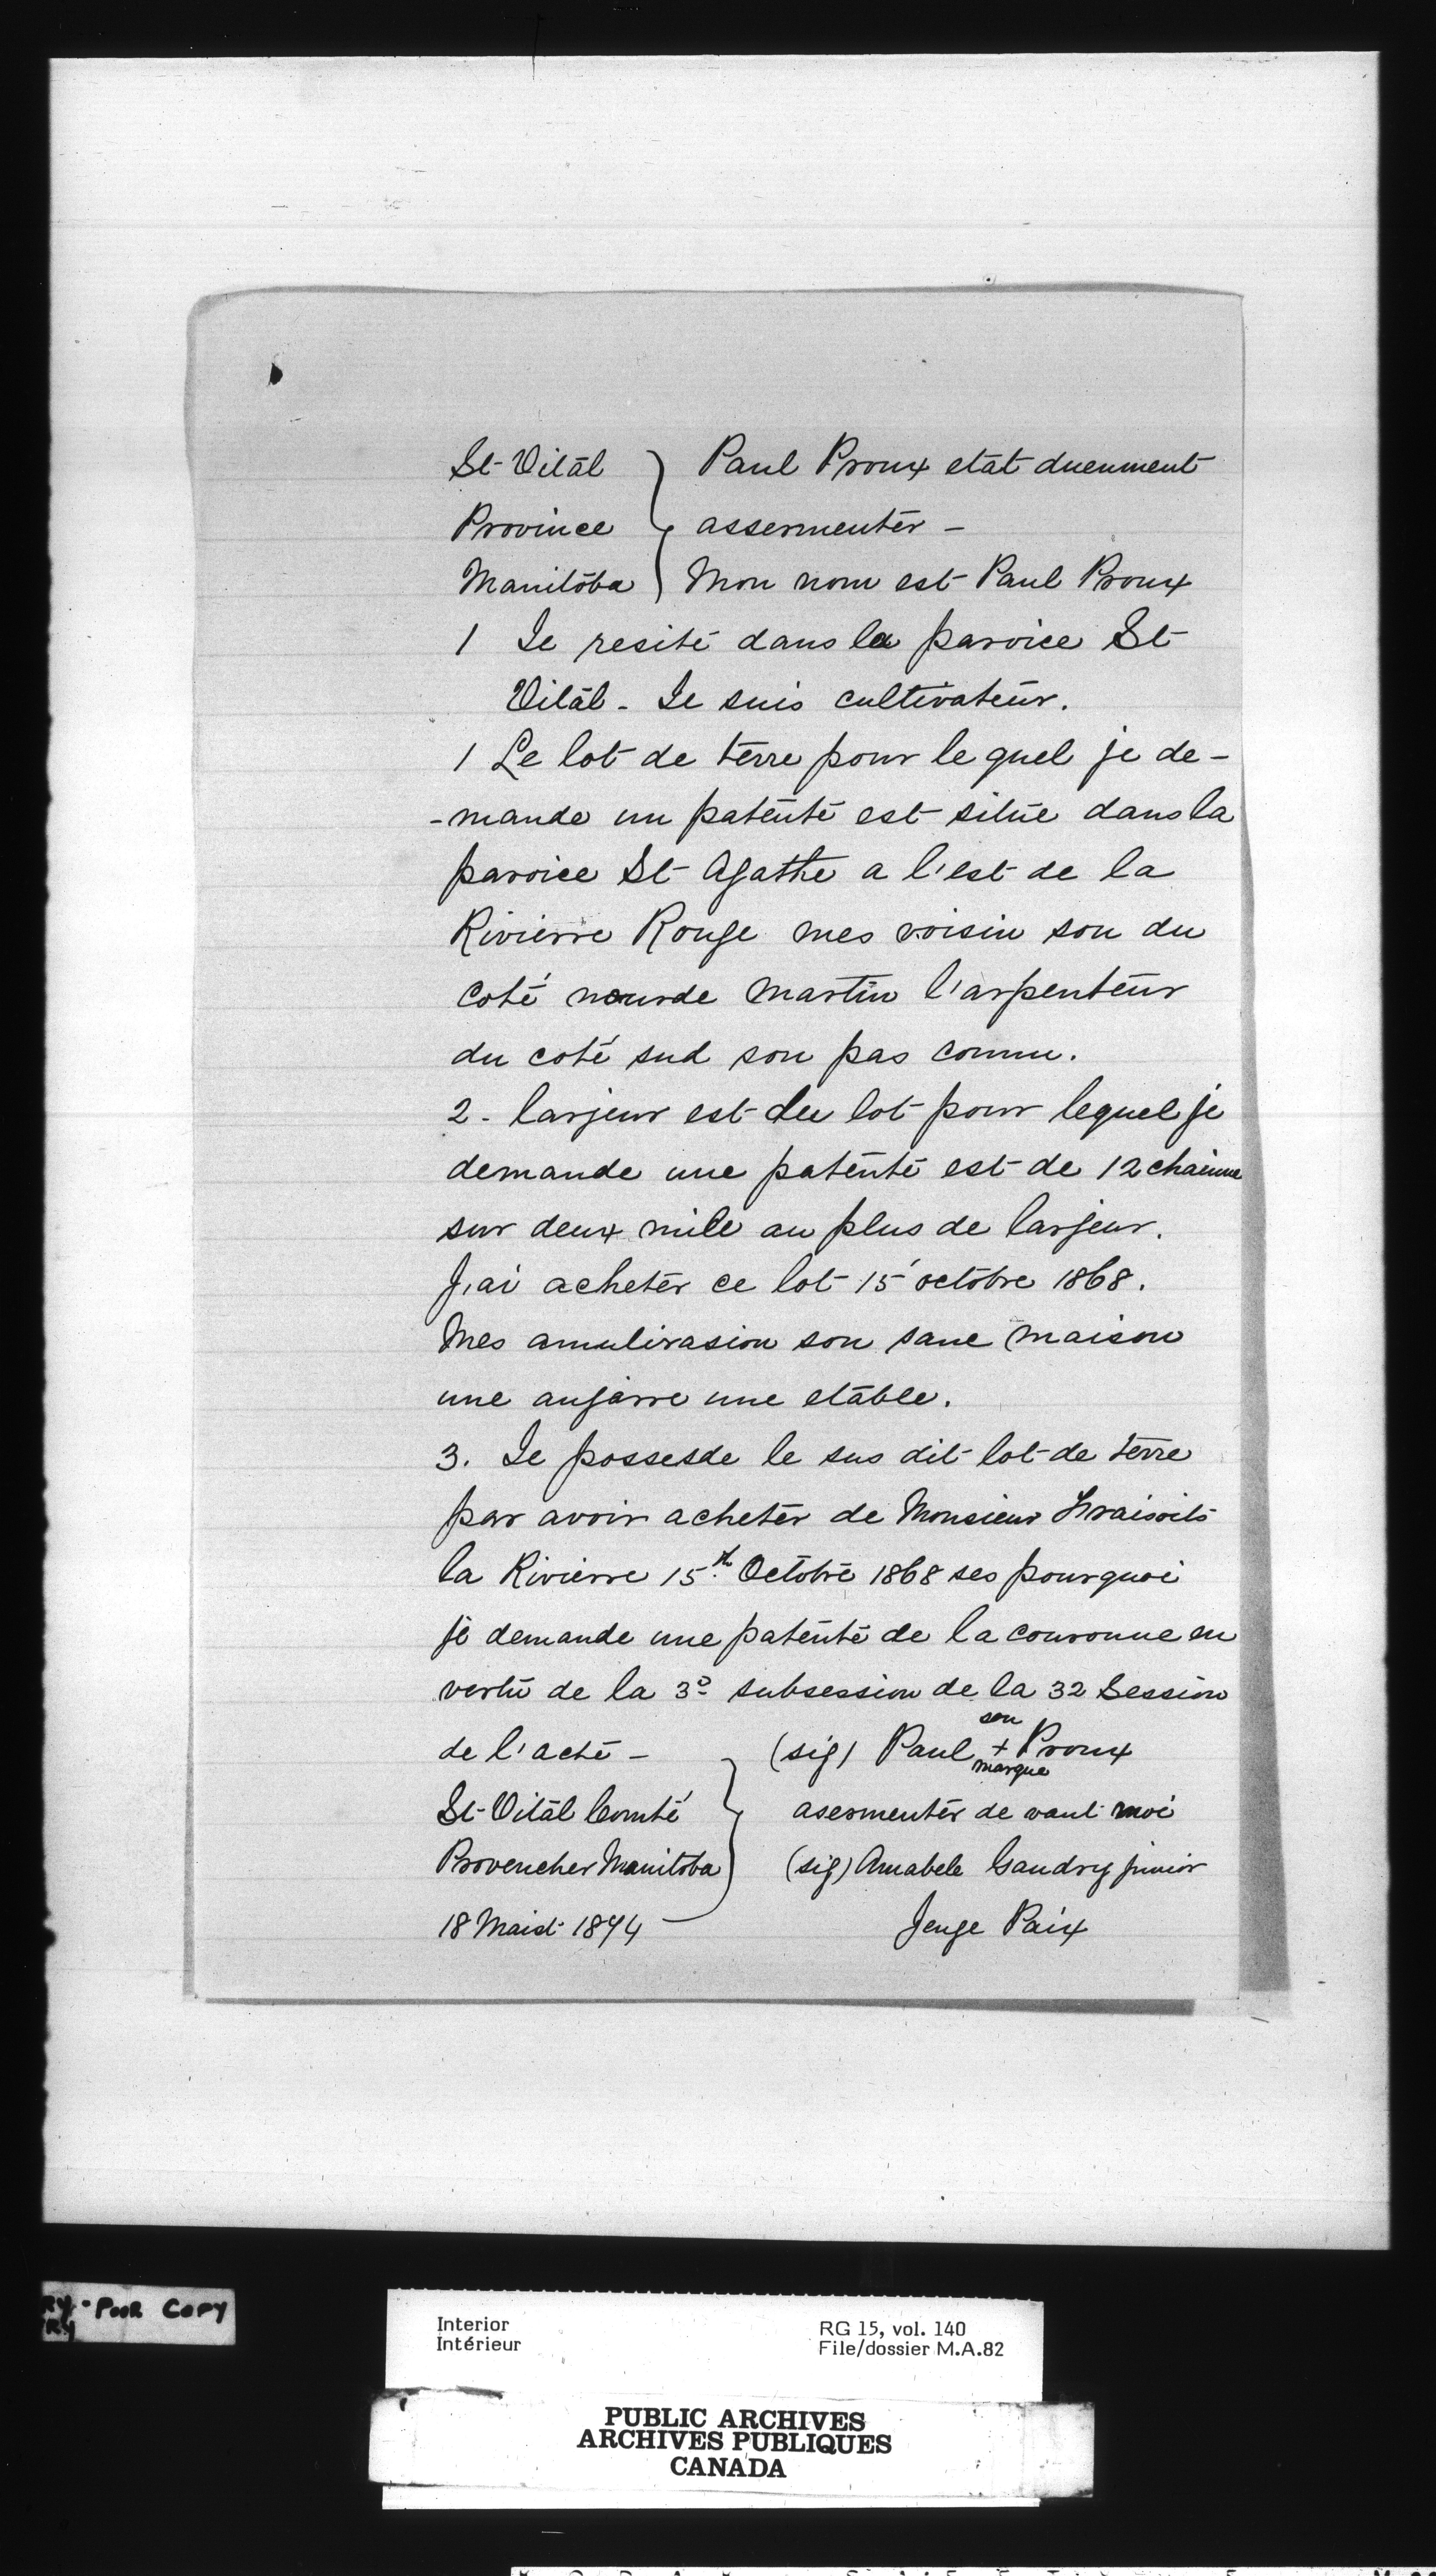 St-Vitāl } Paul Proux etat duenment
Province } assermentér –
Manitōba } Mon nom est Paul Proux
1 Je resite dans la paroice St-
Vitāl - Je suis cultivateur.
1 Le lot de terre pour le quel je de-
-mande un patente est situe dans la
paroice St Agathe a l'est de la
Rivierre Rouge mes voisin son du
coté nourde Martin l'arpenteur
du coté sud son pas connu.
2 - larjeur est du lot pour lequel je
demande une patente est de 12 chainne
sur deux mile au plus de larjeur.
J'ai acheter ce lot 15 octobre 1868.
Mes amulirasion son sane maison
une anjarre une etable.
3. Je possesde le sus dit lot de terre
par avoir acheter de Monsieur
la Rivierre 15th Octobre 1868 ses pourquoi
je demande une patente de la couronne en
vertu de la 3o subsession de la 32 Session
de l'acte – (sig) Paul son + marque Proux
St-Vitāl Comté } asermentér de vant moi
Provencher Manitoba } (sig) Amabele Gaudry junior
18 Maist 1874 – Jenge Paix
RY - POOR COPY
RY
Interior RG 15, vol. 140
Intérieur File/dossier M.A.82
PUBLIC ARCHIVES
ARCHIVES PUBLIQUES
CANADA